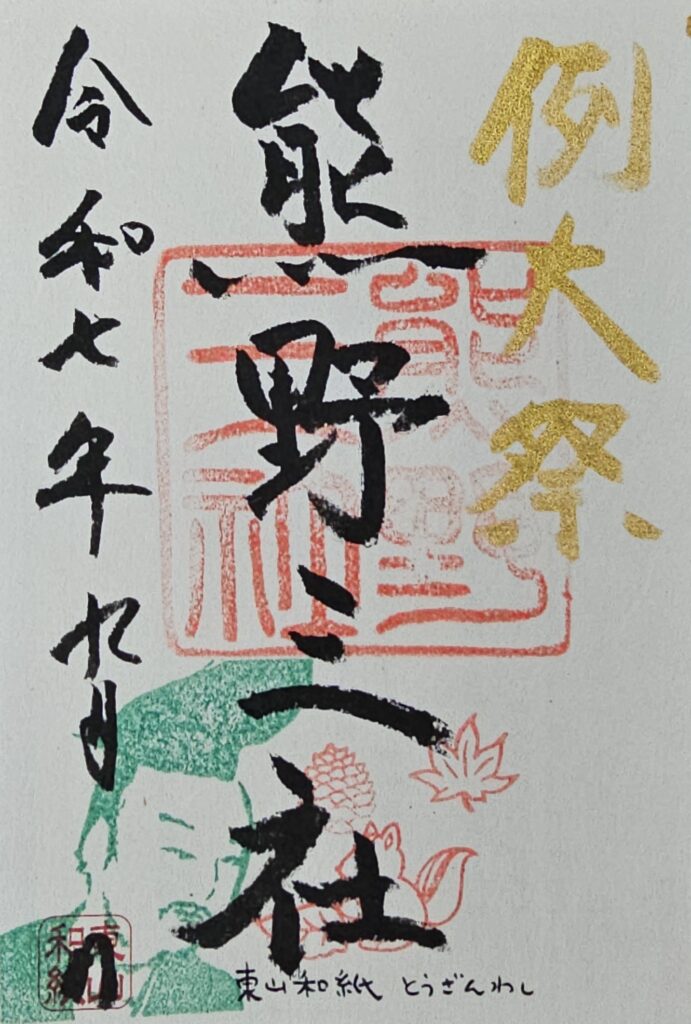 例大祭
熊野三社
令和七年九月 日
熊野
三社
東山
和紙
東山和紙 とうざんわし